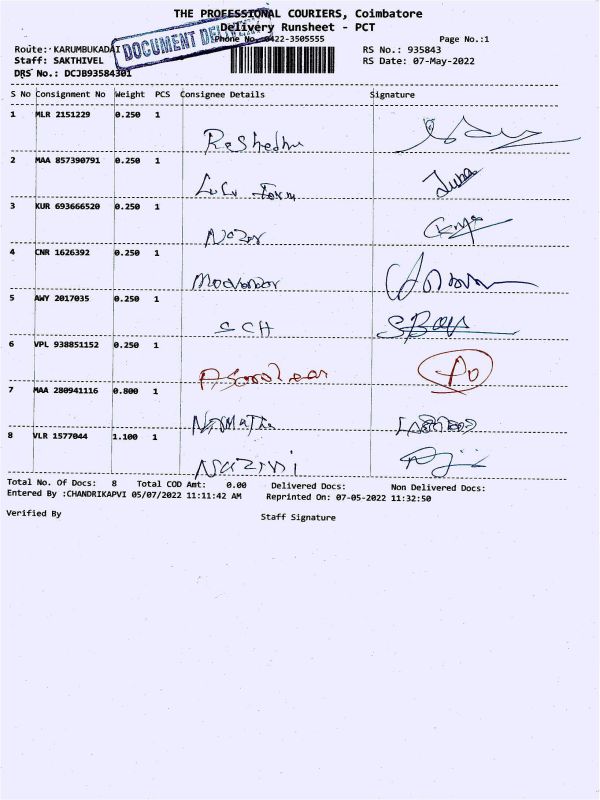 THE PROFESSIONAL COURIERS, Coimbatore
Delivery Runsheet - PCT
DOCUMENT
Phone No. 0422-3505555 Page No.:1
Route: KARUMBUKADAI RS No.: 935843
Staff: SAKTHIVEL RS Date: 07-May-2022
DRS No.: DCJB93584301
S No Consignment No Weight PCS Consignee Details Signature
1 MLR 2151229 0.250 1
2 MAA 857390791 0.250 1
Lulu
3 KUR 693666520 0.250 1
4 CNR 1626392 0.250 1
5 AWY 2017035 0.250 1
SCH
6 VPL 938851152 0.250 1
7 MAA 280941116 0.800 1
8 VLR 1577044 1.100 1
Total No. Of Docs: 8 Total COD Amt: 0.00 Delivered Docs: Non Delivered Docs:
Entered By :CHANDRIKAPVI 05/07/2022 11:11:42 AM Reprinted On: 07-05-2022 11:32:50
Verified By Staff Signature